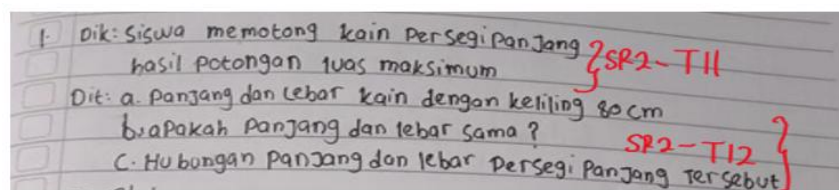 1. Dik: Siswa memotong kain Persegi Panjang
hasil potongan luas maksimum
SR2-T11
Dit: a. Panjang dan lebar kain dengan keliling 80 cm
b. apakah Panjang dan lebar sama?
SR2-T12
C. Hubongan Panjang dan lebar Persegi Panjang Tersebut